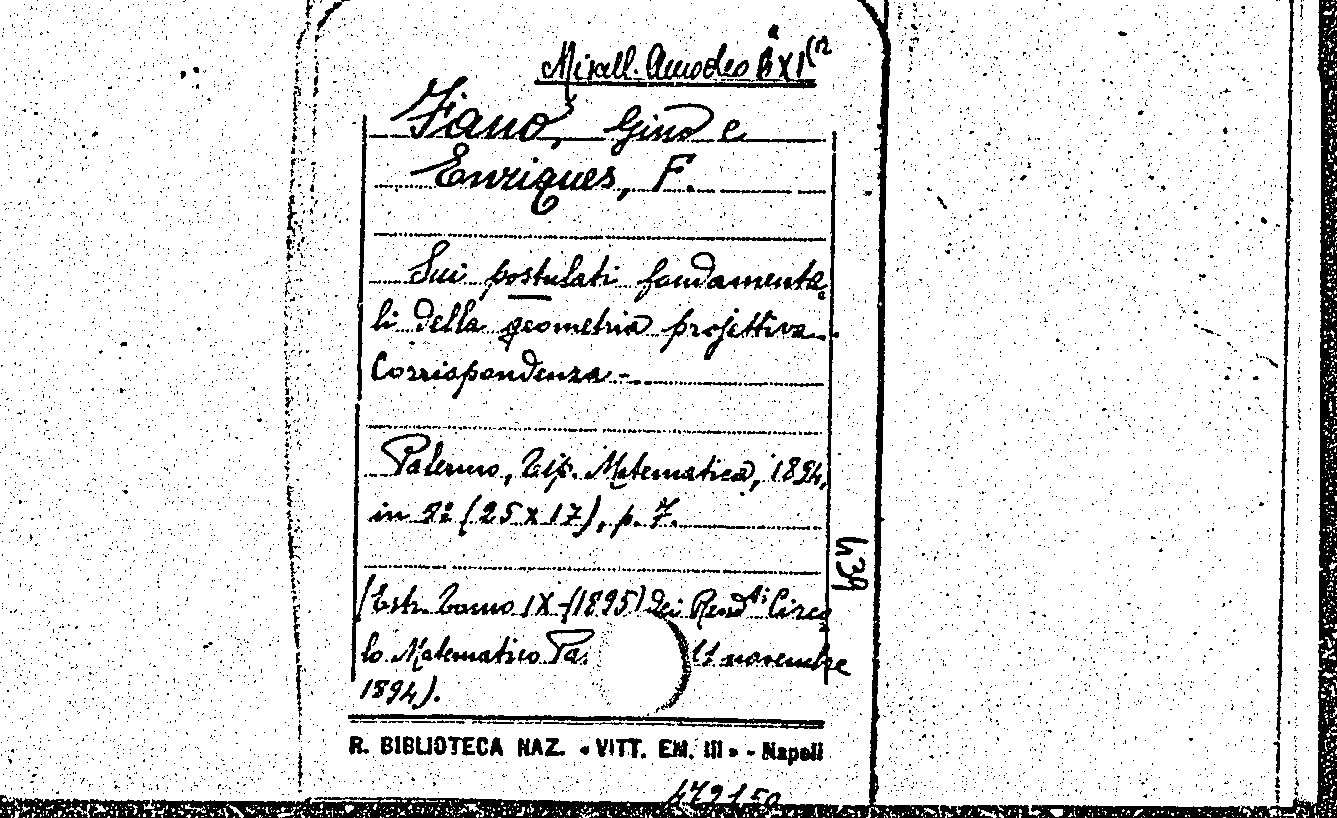 Miscell. Amodeo B XI (12
Fano, Gino e
Enriques, F.
Sui postulati fondamenta
li della geometria projettiva.
Corrispondenza -
Palermo, Tip. Matematica, 1894,
in 4º (25 x 17), p. 7.
(Estr. Tomo IX - (1895) dei Rend.ti Circo
lo Matematico Pa. (1 novembre
1894).
439
R. BIBLIOTECA NAZ. « VITT. EM. III » - Napoli